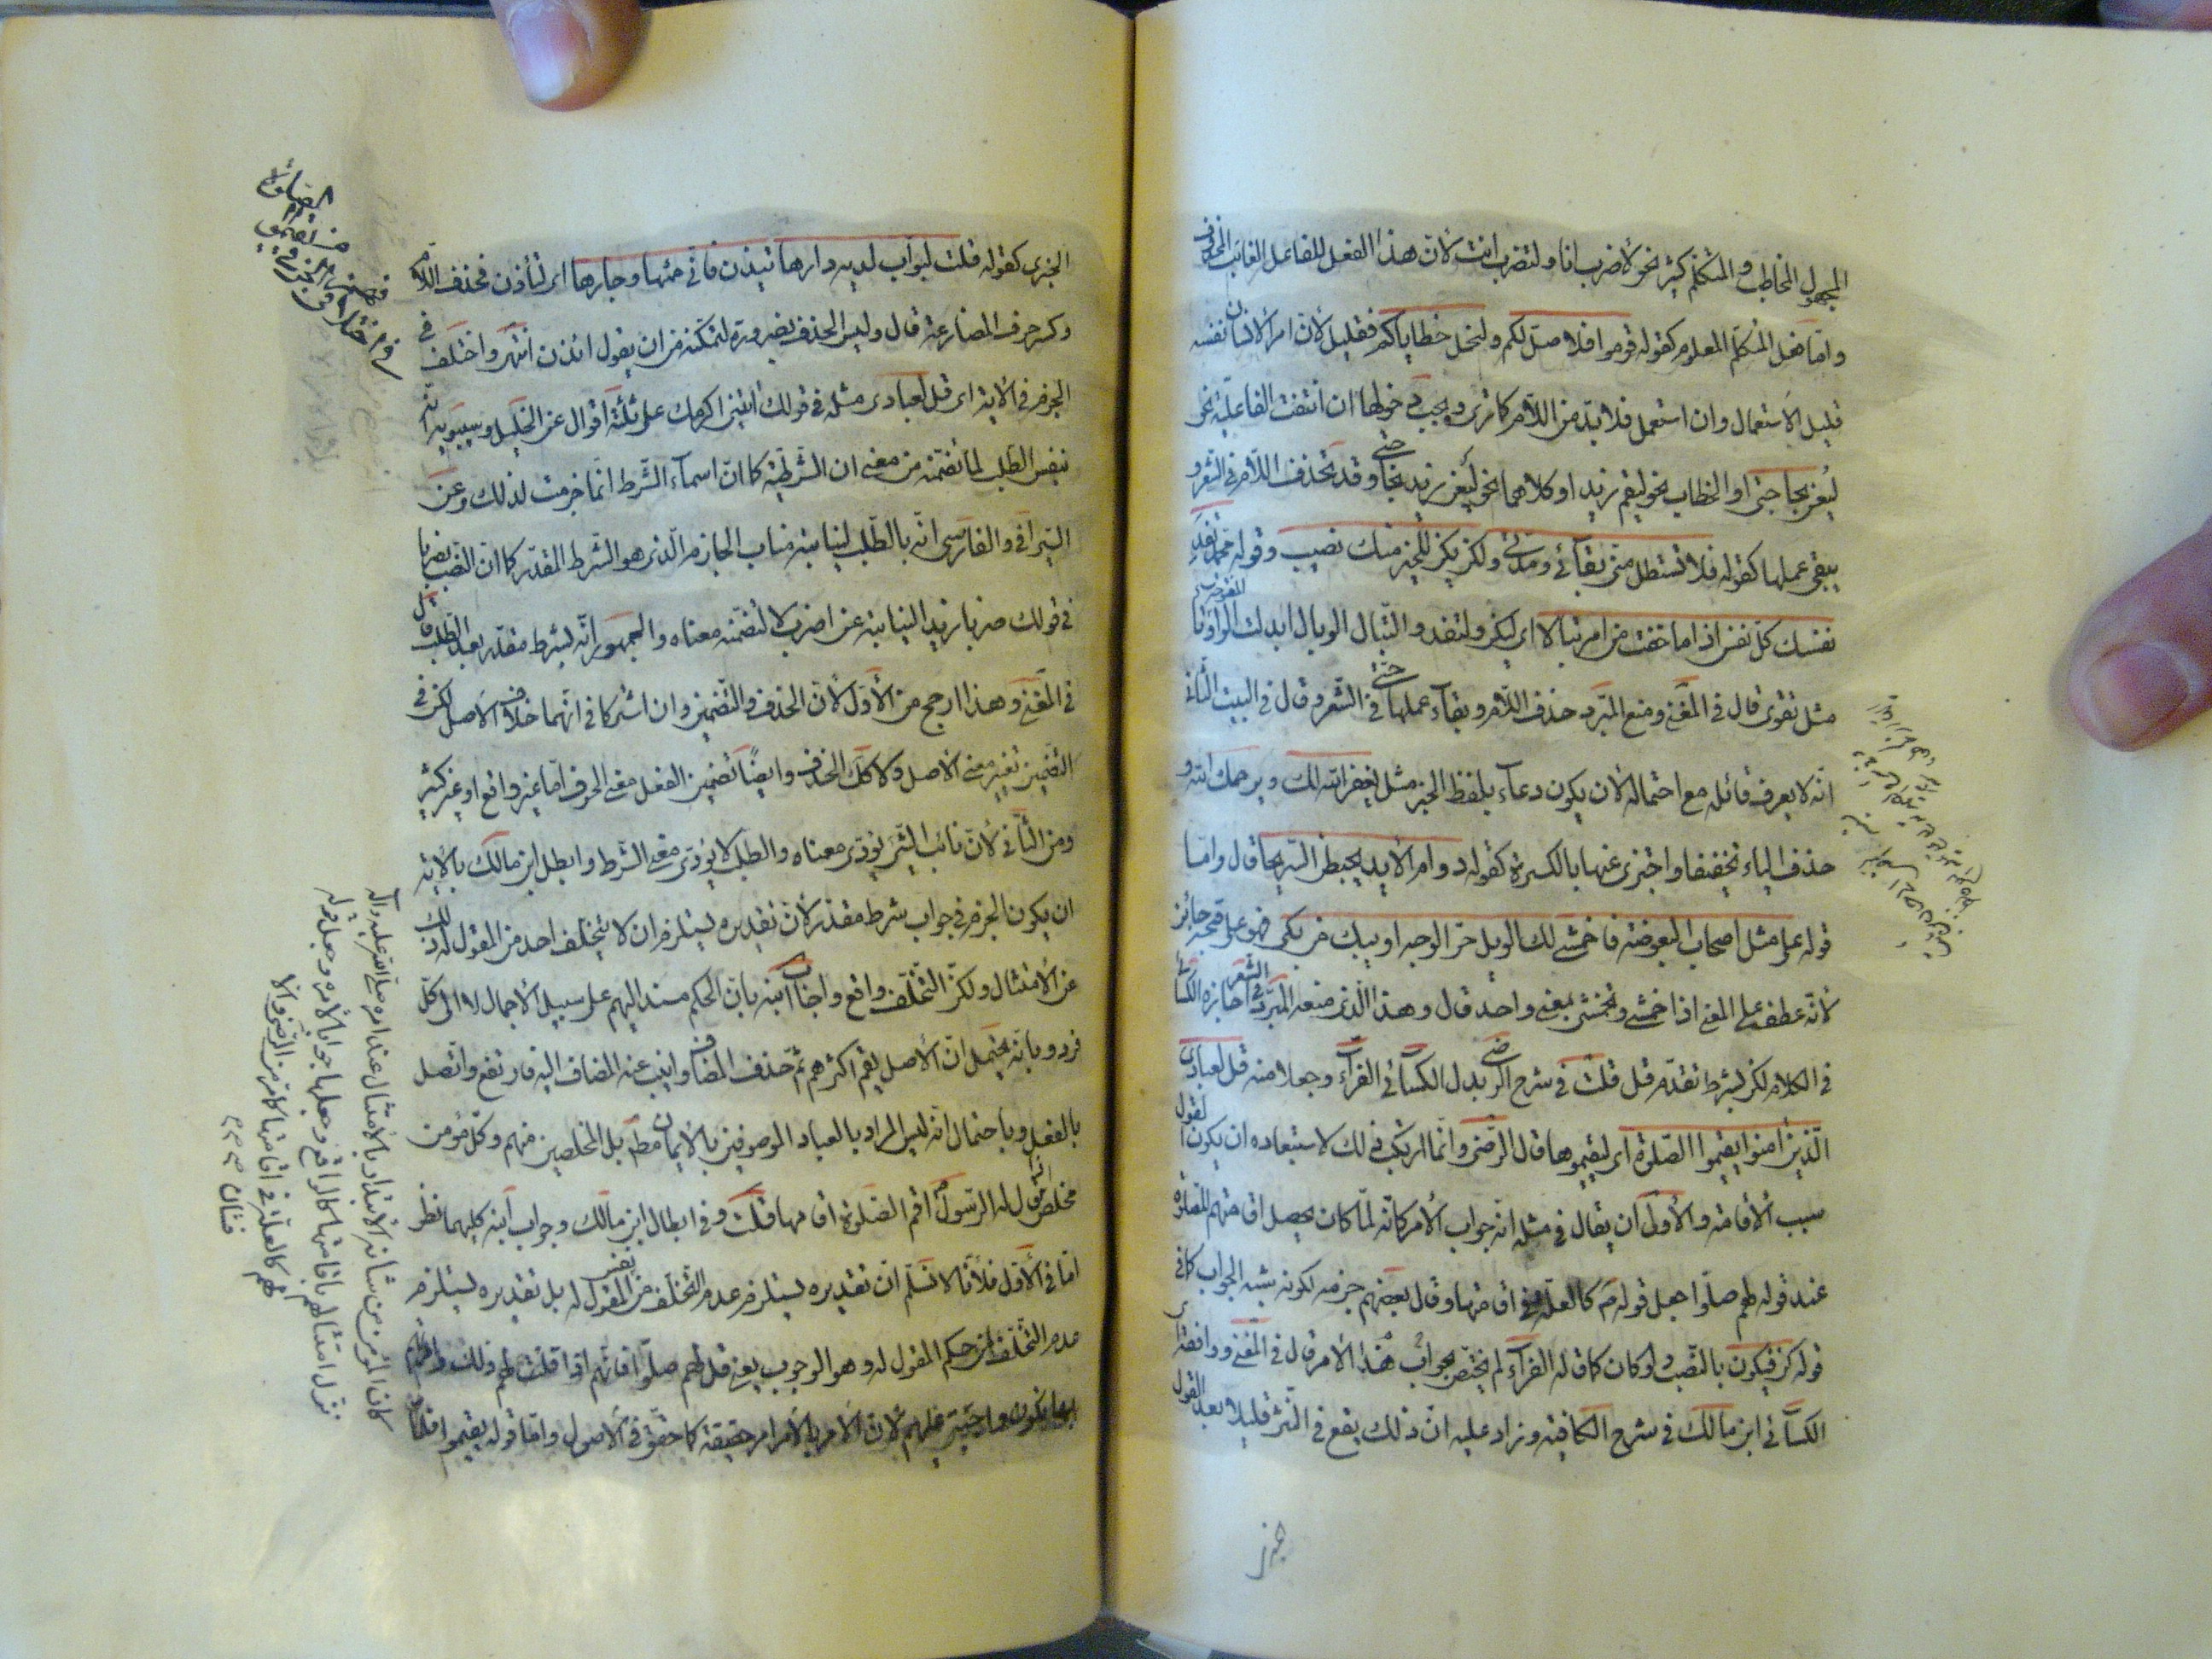 المجهول المخاطب والمتكلم كثير نحو لأضرب انا ولتضرب انت لأنّ هذا الفعل للفاعل الغائب المحذوف
وامّا فعل المتكلّم المعلوم كقوله قوموا فلاصلّ لكم ولنحمل خطاياكم فقليل لأنّ امر الانسان نفسه
قليل الاستعمال وان استعمل فلا بدّ من اللّام كما ترى ويجب دخولها ان انتفت الفاعليّة نحو
ليُعن بحاجتى او الخطاب نحو ليقم زيد او كلاهما نحو ليُعن زيد بحاجتى وقد تحذف اللّام فى الشعر و
يبقى عملها كقوله فلا تستطل منّى بقآئى ومدّتى ولكن يكن للخير منك نصيب وقوله محمّد تفد
نفسك كلّ نفس اذا ما خفت من امر تبالا اى ليكن ولتفد والتّبال الوبال ابدلت الواو المفتوحة تا
مثل تقوى قال فى المغنى ومنع المبرّد حذف اللّام وبقآء عملها حتّى فى الشّعر وقال فى البيت الثّانى
انّه لا يعرف قائله مع احتماله لأن يكون دعآء بلفظ الخبر مثل يغفر الله لك ويرحمك الله و
حذف الياء تخفيفا واجتزى عنها بالكسرة كقوله دوامى الايد يخبطن السّريحا قال وامّا
قوله على مثل اصحاب البعوضة فاخمشى لك الويل حرّ الوجه او يبك من بكى فهو على قبحه جائز
لأنّه عطف على المعنى اذ اخمشى ولتخمشى بمعنى واحد قال وهذا الّذى منعه المبرّد فى الشّعر اجازه الكسائى
فى الكلام لكن بشرط تقدّم قل قلت فى شرح الرّضى بدل الكسآئى الفرّآء وجعلا منه قل لعبادى
الّذين امنوا يقيموا الصّلوة اى ليقيموها قال الرّضى وانّما ارتكب ذلك لاستبعاده ان يكون القول
سبب الأقامة والأولى ان يقال فى مثله انّه جواب الأمر كانّه لمّا كان يحصل اقامتهم الصّلوة
عند قوله لهم صلّوا جعل قوله كالعلّة فى اقامتها وقال بعضهم جزمه لكونه يشبه الجواب كما فى
قوله كن فيكون بالنّصب ولو كان كما قال الفرّآء لم يختصّ بجواب هذا الأمر قال فى المغنى ووافقه اى
الكسآئى ابن مالك فى شرح الكافية وزاد عليه انّ ذلك يقع فى النّثر قليلا بعد القول
الخبرى كقوله قلت لبوّاب لديه دارها تيذن فانّى حمئها وجارها اى لتأذن فحذف اللام
وكسر حرف المضارعة قال وليس الحذف بضرورة لتمكّنه من ان يقول ايذن انتهى واختلف فى
الجزم فى الأية اى قل لعبادى مثله فى قولك ائتنى اكرمك على ثلثة اقوال عن الخليل وسيبويه انّه
بنفس الطّلب لما تضمّنه من معنى ان الشّرطيّة كما انّ اسمآء الشّرط انّما جزمت لذلك وعن
السّيرافى والفارسى انّه بالطّلب لنيابته مناب الجازم الّذى هو الشّرط المقدّر كما انّ النّصب بضربا
فى قولك ضربا زيدا لنيابته عن اضرب لا لتضمّنه معناه والجمهور انّه لشرط مقدّر بعد الطّلب قال
فى المغنى وهذا ارجح من الأوّل لأنّ الحذف والتّضمين وان اشتركا فى انّهما خلاف الأصل لكن فى
التّضمين تغيير معنى الأصل ولا كذلك الحذف وايضًا تضمين الفعل معنى الحرف امّا غير واقع او غير كثير
ومن الثّانى لأنّ نائب الشّىء يؤدّى معناه والطّلب لا يؤدّى معنى الشّرط وابطل ابن مالك بالأية
ان يكون الجزم فى جواب شرط مقدّر لأنّ تقديره يستلزم ان لا يتخلّف احد من المقول له ذلك
عن الأمتثال ولكنّ التّخلّف واقع واجاب ابنه بانّ الحكم مسند اليهم على سبيل الأجمال لا الى كلّ
فرد وبانّه يحتمل انّ الأصل يقم اكثرهم ثمّ حذف المضاف وانيب عنه المضاف اليه فارتفع واتّصل
بالفعل وباحتمال انّه ليس المراد بالعباد الموصوفين بالأيمان مطم بل المخلصين منهم وكلّ مؤمن
مخلص قال له الرّسول اقم الصّلوة اقامها قلت وفى ابطال ابن مالك وجواب ابنه كليهما نظر
امّا فى الأوّل فلأنّا لا نسلّم انّ تقديره يستلزم عدم التّخلّف من المقول له بل تقديره يستلزم
عدم التّخلّف من حكم المقول له وهو الوجوب يعنى قل لهم صلّوا فانّهم اذا قلت لهم ذلك
واجبة عليهم لأنّ الأمر بالأمر امر حقيقة كما حقّق فى الأصول وامّا قوله يقيموا
كان المؤمن من شانه الابتدار بالامتثال عند امره صلى الله عليه وآله
نزل امتثالهم باقامتها كالواقع وجعلها جوابا لأمره وجعل قوله
لهم كالعلّة فى اقامتها كما مر من الرّضى والا
فتان